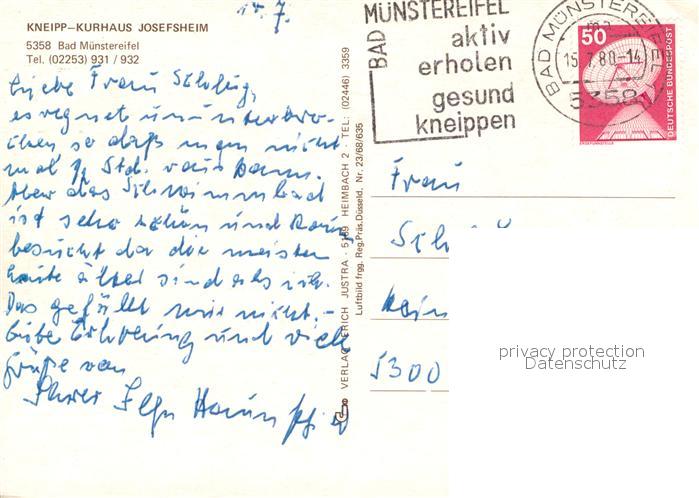 14. 7.
KNEIPP-KURHAUS JOSEFSHEIM
5358 Bad Münstereifel
Tel. (02253) 931 / 932
Liebe Frau
es regnet ununterbro-
chen so daß man nicht
mal ½ Std. raus kann.
Aber das Schwimmbad
ist sehr schön und kaum
besucht da die meisten
Leute älter sind als ich.
Das gefällt mir nicht.-
Gute Erholung und viele
Grüße von
Ihrer
VERLAG ERICH JUSTRA · 5169 HEIMBACH 2 · TEL.: (02446) 3359
Luftbild frgg. Reg.Präs.Düsseld. Nr. 23/68/635
BAD MÜNSTEREIFEL
aktiv
erholen
gesund
kneippen
BAD MÜNSTEREIFEL
15.7.80-14
5358
50
DEUTSCHE BUNDESPOST
ERDEFUNKSTELLE
Frau
Sch
5300
privacy protection
Datenschutz